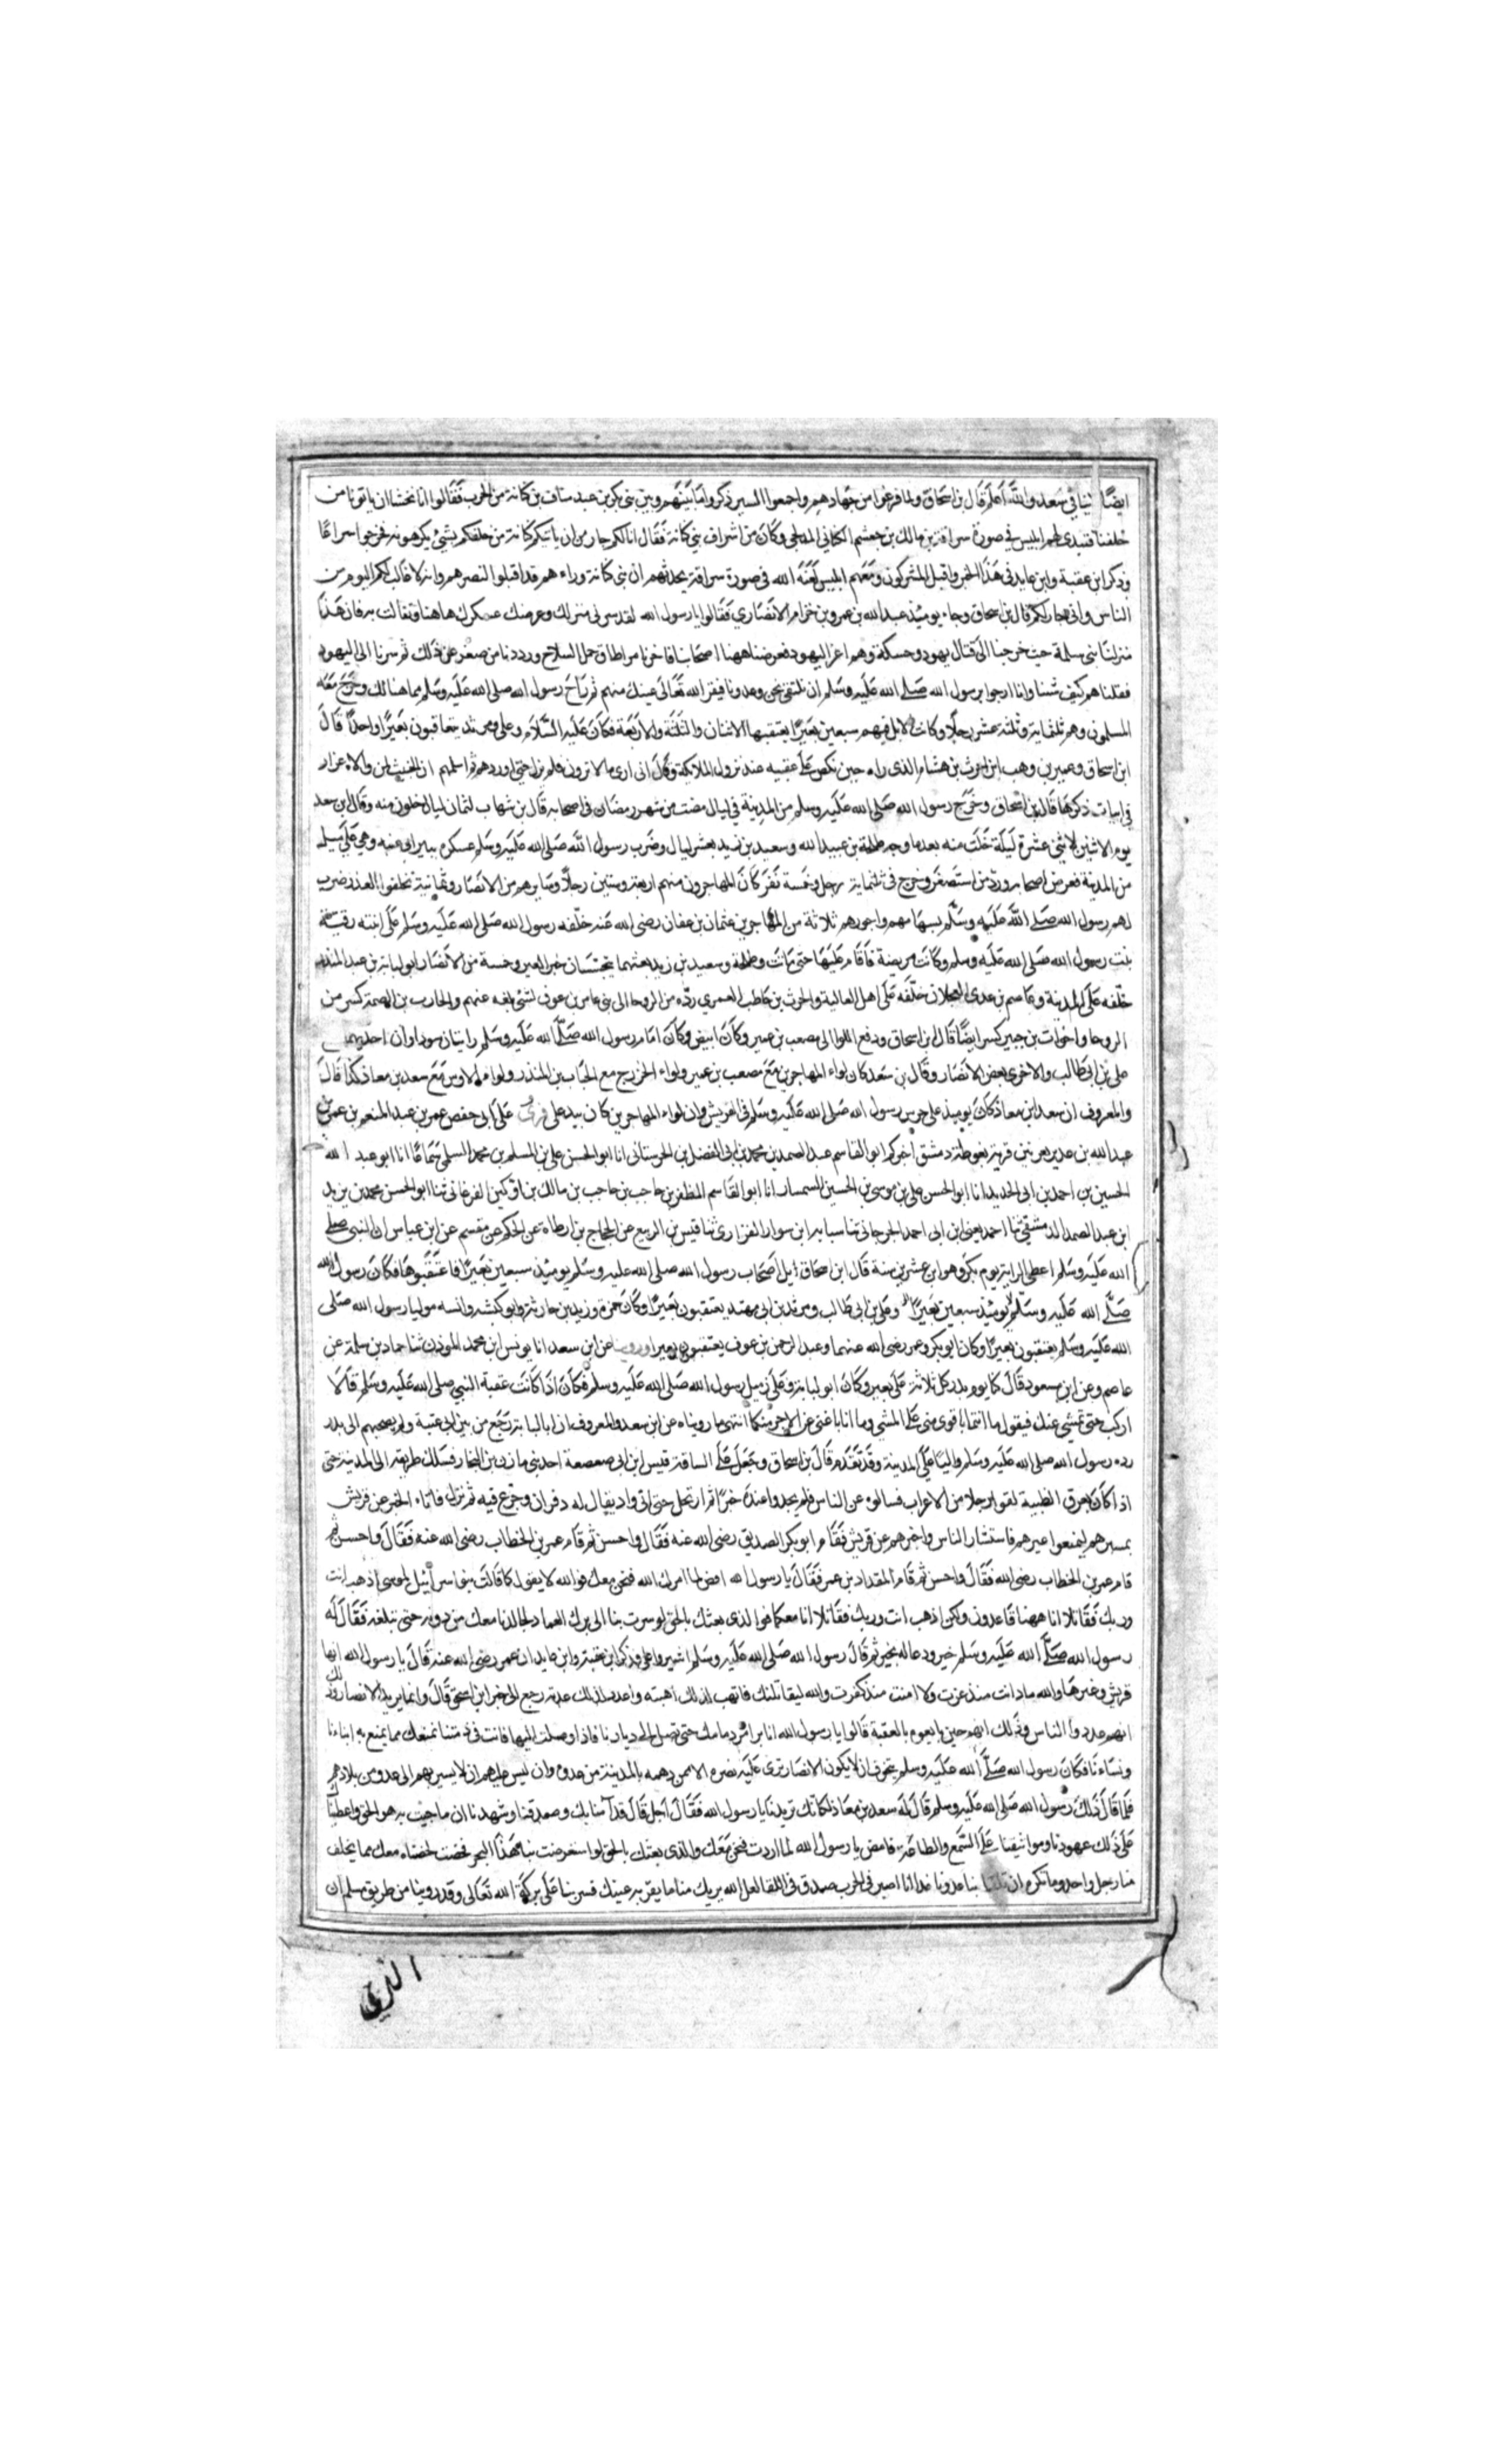 ايضًا ثنا ابي سعد والله اعلم قال بن اسحاق ولما فرغوا من جهادهم واجمعوا المسير ذكروا ما بينهم وبين بني بكر بن عبد مناف بن كنانة من الحرب فقالوا انا نخشا ان ياتونا من
خلفنا فتبدى لهم ابليس في صورة سراقة بن مالك بن جعشم الكناني المدلجي وكان من اشراف بني كنانة فقال انا لكم جار من ان ياتيكم كنانة من خلفكم بشئ يكرهونه فخرجوا سراعًا
وذكر ابن عقبة وابن عايد في هذا الخبر واقبل المشركون ومعهم ابليس لعنه الله في صورة سراقة يحدثهم ان بني كنانة وراءهم قد اقبلوا لنصرهم وانه لا غالب لكم اليوم من
الناس واني جار لكم قال بن اسحاق وجاء يومئذ عبد الله بن عمرو بن حرام الانصاري فقالوا يا رسول الله لقد سرني منزلك وعرضك عسكرك هاهنا وتفالت به فان هذا
منزلنا بني سلمة حيث خرجنا الى قتال يهود وحسكة وهم اعز اليهود فعرضنا ههنا اصحابنا فاخرنا من اطاق حمل السلاح ورددنا من صغر عن ذلك ثم سرنا الى اليهود
فقتلناهم كيف شئنا وانا ارجوا يرسول الله صلى الله عليه وسلم ان نلتقي نحن وعدونا فيقر الله تعالى عينك منهم ثم راح رسول الله صلى الله عليه وسلم مما هنالك وخرج معه
المسلمون وهم ثلثماية وثلثة عشر رجلا وكانت الابل فيهم سبعين بعيرًا يعتقبها الاثنان والثلثة والاربعة فكان عليه السلام وعلي ومرثد يتعاقبون بعيرًا واحدًا قال
ابن اسحاق وعمير بن وهب ابن الحرث بن هشام الذى راه حين نكص على عقبيه عند نزول الملائكة وقال اني ارى ما لا ترون فلم يزل حتى اوردهم ثم اسلمهم ان الخبيث لمن والاه غرار
في ابيات ذكرها قال بن اسحاق وخرج رسول الله صلى الله عليه وسلم من المدينة في ليال مضت من شهر رمضان في اصحابه قال بن شهاب لثمان ليال خلون منه وقال ابن سعد
يوم الاثنين لاثني عشرة ليلة خلت منه بعدما وجه طلحة بن عبيد الله وسعيد بن زيد بعشر ليال وضرب رسول الله صلى الله عليه وسلم عسكره ببير ابي عنبه وهي على ميل
من المدينة فعرض اصحابه ورد من استصغر وخرج في ثلثماية رجل وخمسة نفر كان المهاجرون منهم اربعة وستين رجلا وسايرهم من الانصار وثمانية تخلفوا لعذر ضرب
لهم رسول الله صلى الله عليه وسلم بسهامهم واجورهم ثلاثة من المهاجرين عثمان بن عفان رضى الله عنه خلفه رسول الله صلى الله عليه وسلم على ابنته رقية
بنت رسول الله صلى الله عليه وسلم وكانت مريضة فاقام عليها حتى ماتت وطلحة وسعيد بن زيد بعثهما يتحسسان خبر العير وخمسة من الانصار ابو لبابة بن عبد المنذر
خلفه على المدينة وعاصم بن عدى العجلان خلفه على اهل العالية والحرث بن حاطب العمري رده من الروحا الى بني عامر بن عوف لشئ بلغه عنهم والحارث بن الصمة كسر من
الروحا واخوات بن جبير كسر ايضًا قال بن اسحاق ودفع اللوا الى مصعب بن عمير وكان ابيض وكان امام رسول الله صلى الله عليه وسلم رايتان سوداوان احديهما
على بن ابي طالب والاخرى بعض الانصار وقال بن سعد كان لواء المهاجرين مع مصعب بن عمير ولواء الخزرج مع الحباب بن المنذر ولواء الاوس مع سعد بن معاذ كذا قال
والمعروف ان سعد ابن معاذ كان يوميذ على حرس رسول الله صلى الله عليه وسلم في العريش وان لواء المهاجرين كان بيد على قرئ على ابي حفص عمر بن عبد المنعم بن عمر بن
عبد الله بن غدير بعربيل قرية بغوطة دمشق اخبركم ابو القاسم عبد الصمد بن محمد بن ابي الفضل بن الحرستاني انا ابو الحسن علي بن المسلم بن محمد السلمي سماعًا انا ابو عبد الله
الحسين بن احمد بن ابي الحديد انا ابو الحسن علي بن موسى بن الحسين السمسار انا ابو القاسم المظفر بن حاجب بن حاجب بن مالك بن اركين الفرغاني ثنا ابو الحسن محمد بن يزيد
ابن عبد الصمد الدمشقي ثنا احمد يعني ابن ابي احمد الجرجاني ثنا سبابه ابن سوار الفزارى ثنا قيس بن الربيع عن الحجاج بن ارطاة عن الحكم عن مقسم عن ابن عباس ان النبي صلى
الله عليه وسلم اعطى الراية يوم بدر وهو ابن عشرين سنة قال ابن اسحاق ابل اصحاب رسول الله صلى الله عليه وسلم يومئذ سبعين بعيرًا فاعتقبوها فكان رسول الله
صلى الله عليه وسلم يومئذ سبعين بعيرًا وعلى بن ابي طالب ومرثد بن ابي مرثد يعتقبون بعيرًا وكان حمزة وزيد بن حارثة وابو كبشه وانسه موليا رسول الله صلى
الله عليه وسلم يعتقبون بعيرًا وكان ابو بكر وعمر رضي الله عنهما وعبد الرحمن بن عوف يعتقبون بعيرا وروينا عن ابن سعد انا يونس ابن محمد المؤدب ثنا حماد بن سلمة عن
عاصم وعن ابن مسعود قال كنا يوم بدر كل ثلاثة على بعير وكان ابو لبابة وعلى زميل رسول الله صلى الله عليه وسلم فكان اذا كانت عقبة النبي صلى الله عليه وسلم قالا
اركب حتى نمشي عنك فيقول ما انتما باقوى مني على المشي وما انا باغني عن الاجر منكما انتهى ما رويناه عن ابن سعد والمعروف ان ابا لبابة رجع من بير ابي عتبة ولم يصحبهم الى بدر
رده رسول الله صلى الله عليه وسلم واليًا على المدينة وقد تقدم قال بن اسحاق وجعل على الساقة قيس ابن ابي صعصعة احد بني مازن بن النجار فسلك طريقه الى المدينة حتى
اذا كان بعرق الظبية لقوا رجلا من الاعراب فسالوه عن الناس فلم يجدوا عنده خبرًا ثم ارتحل حتى اتى واديقال له دفران وجزع فيه ثم نزل فاتاه الخبر عن قريش
بمسيرهم ليمنعوا عيرهم فاستشار الناس واخبرهم عن قريش فقام ابو بكر الصديق رضي الله عنه فقال واحسن ثم قام عمر بن الخطاب رضى الله عنه فقال واحسن ثم
قام عمر بن الخطاب رضى الله فقال واحسن ثم قام المقداد بن عمر فقال يا رسول الله امض لما امرك الله فنحن معك فوالله لا يقول كما قالت بنو اسرائيل لموسى اذهب انت
وربك فقاتلا انا ههنا قاعدون ولكن اذهب انت وربك فقاتلا انا معكما فوا لذى بعثك بالحق لو سرت بنا الى برك الغماد لجالدنا معك من دونه حتى نبلغه فقال له
رسول الله صلى الله عليه وسلم خير ودعا له بخير ثم قال رسول الله صلى الله عليه وسلم اشيروا على وذكر ابن عقبة وابن عايد ان عمر رضى الله عنه قال يا رسول الله انها
قريش وعزها والله ما ذلت منذ عزت ولا امنت منذ كفرت والله ليقاتلنك فاتهب لذلك اهبته واعدد لذلك عدته رجع الى خبر ابن اسحق قال وانما يريد الانصار وذلك
انهم عدد الناس وذلك انهم حين بايعوه بالعقبة قالوا يا رسول الله انا براء من ذمامك حتى تصل الى ديارنا فاذا وصلت الينا فانت في ذمتنا نمنعك مما يمنع به ابناءنا
ونساءنا فكان رسول الله صلى الله عليه وسلم يتخوف ان لا يكون الانصار ترى عليه نصره الا ممن دهمه بالمدينة من عدوه وان ليس عليهم ان لا يسير بهم الى عدو من بلادهم
فلما قال ذلك رسول الله صلى الله عليه وسلم قال له سعد بن معاذ لكانك تريدنا يا رسول الله فقال اجل قال قد آمنا بك وصدقنا وشهدنا ان ما جيت به هو الحق واعطيناك
على ذلك عهودنا ومواثيقنا على السمع والطاعة فامض يا رسول الله لما اردت فنحن معك والذى بعثك بالحق لو استعرضت بنا هذا البحر فخضت لخضناه معك مما يخلف
منا رجل واحد وما نكره ان تلقنا بنا عدونا غدا انا اصبر في الحرب صدق في اللقا لعل الله يريك منا ما يقر به عينك فسر بنا على بركة الله تعالى وقد روينا من طريق مسلم ان
الذي